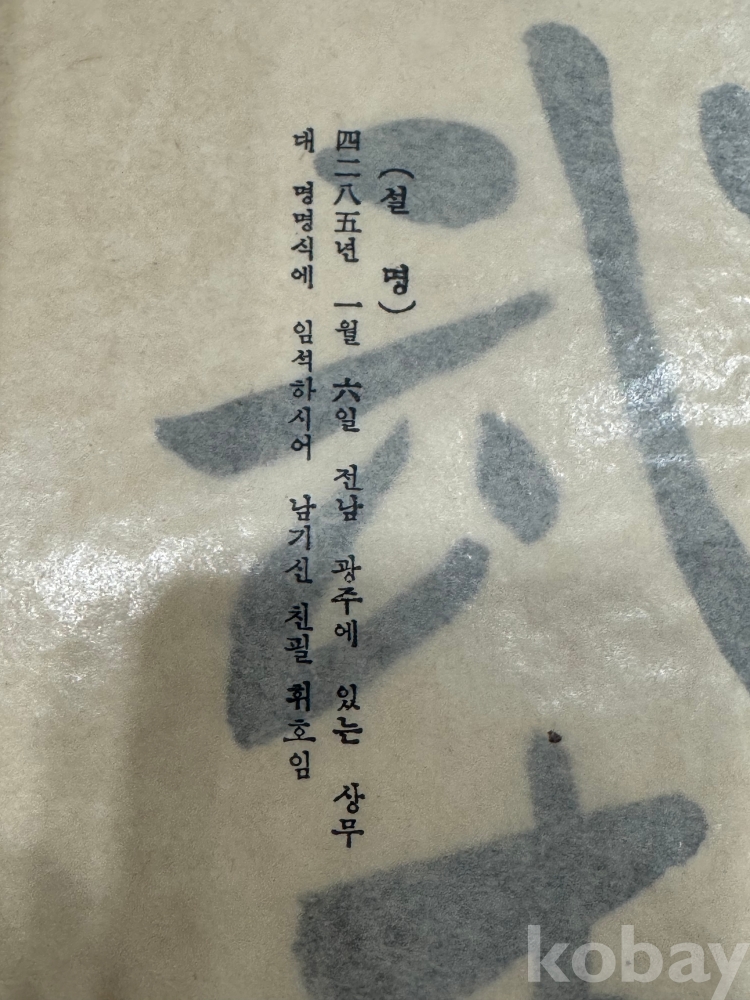 (설 명)
四二八五년 一월 六일 전남 광주에 있는 상무
대 명명식에 임석하시어 남기신 친필 휘호임
kobay